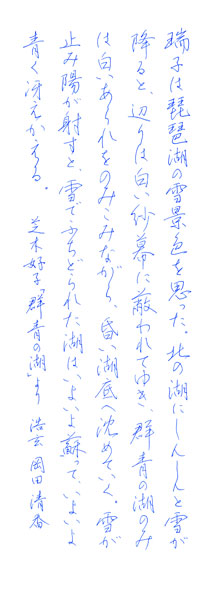 瑞子は琵琶湖の雪景色を思った。北の湖にしんしんと雪が
降ると、辺りは白い紗幕に蔽われてゆき、群青の湖のみ
は白いあられをのみこみながら、昏い湖底へ沈めていく。雪が
止み陽が射すと、雪でふちどられた湖はいよいよ蘇って、いよいよ
青く冴えかえる。 芝木好子「群青の湖」より 浩玄 岡田清春